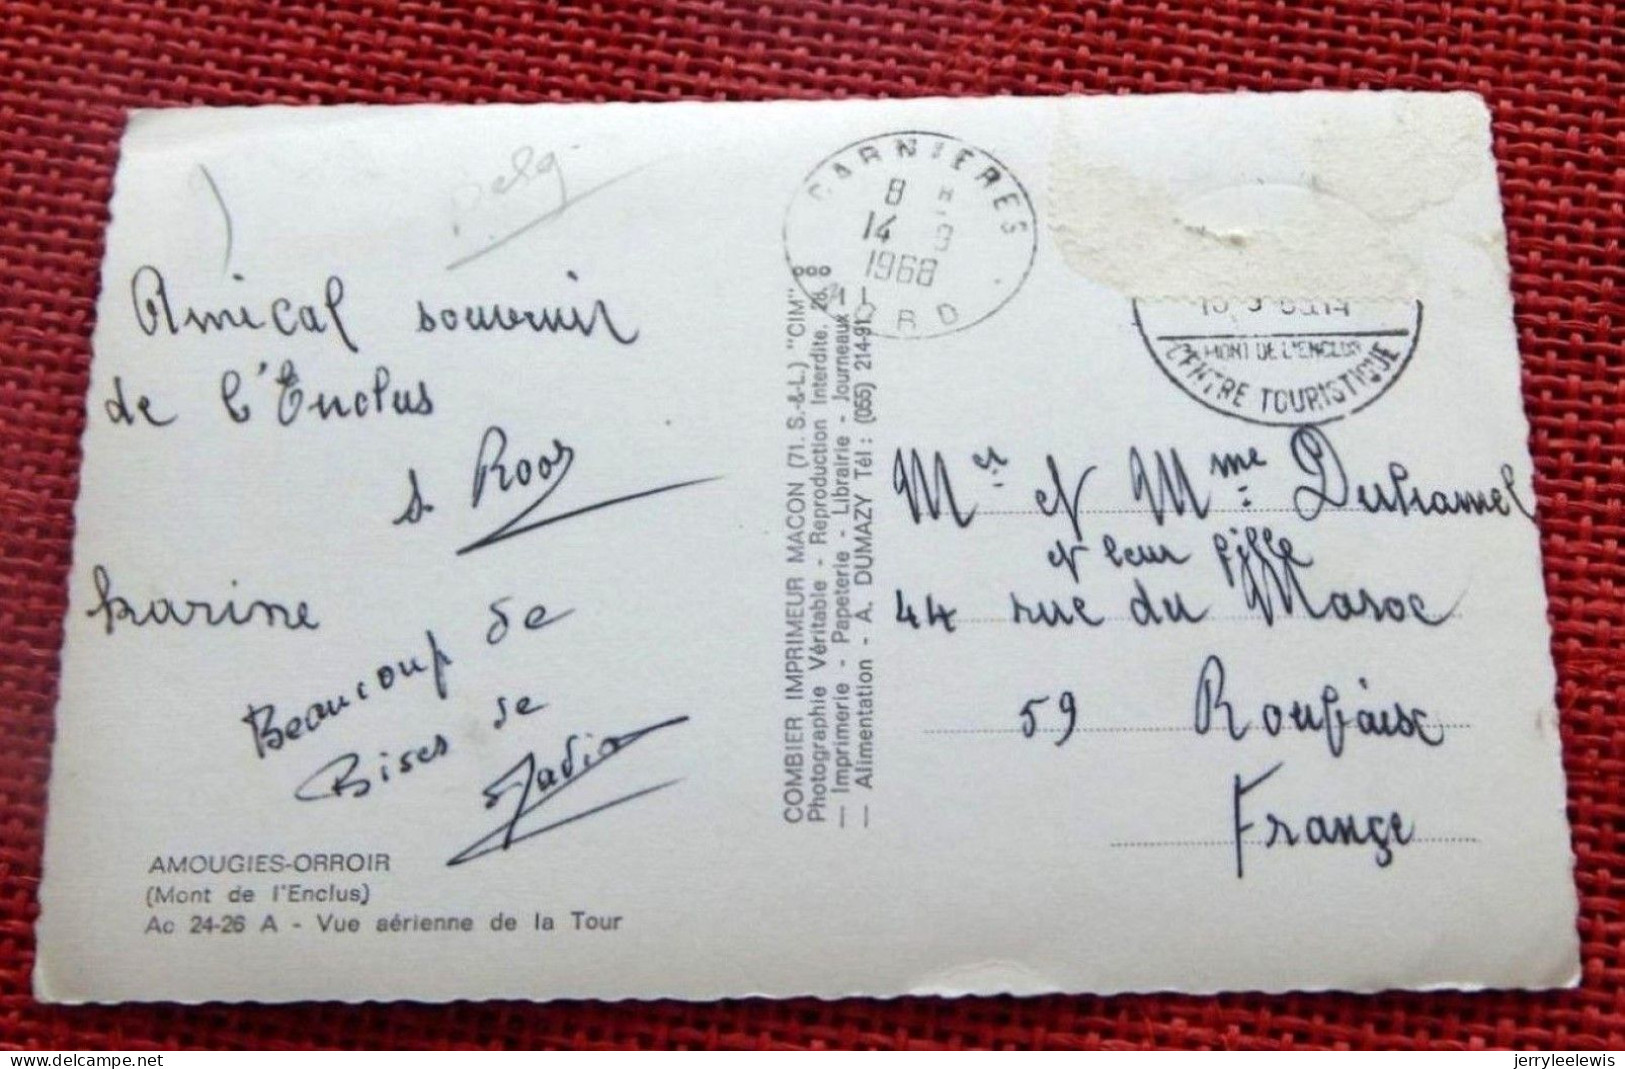 Belg.
Amical souvenir
de l'Enclus
Roos
Karine
Beaucoup de
Bises de
Nadia
AMOUGIES-ORROIR
(Mont de l'Enclus)
Ac 24-26 A - Vue aérienne de la Tour
COMBIER IMPRIMEUR MACON (71. S.-&-L.) "CIM"
Photographie Véritable - Reproduction Interdite.
— Imprimerie - Papeterie - Librairie - Journeaux
— Alimentation - A. DUMAZY Tél : (055) 214-91
CARNIERES
8
14 - 9
1968
NORD
MONT DE L'ENCLUS
CENTRE TOURISTIQUE
Mer et Mme Duhamel
et leur fille
44 rue du Maroc
59 Roubaix
France
jerryleelewis